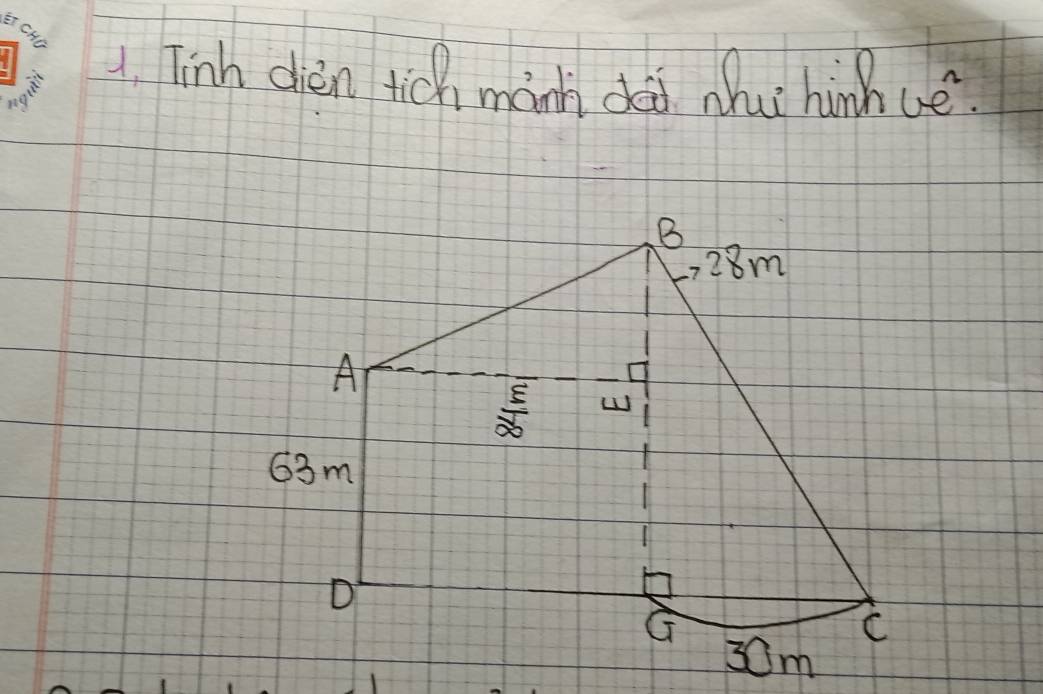 ẾT CHỮ
người
1, Tính diện tích mảnh đất như hình vẽ.
B
28m
A
84m
E
63m
D
G
C
30m